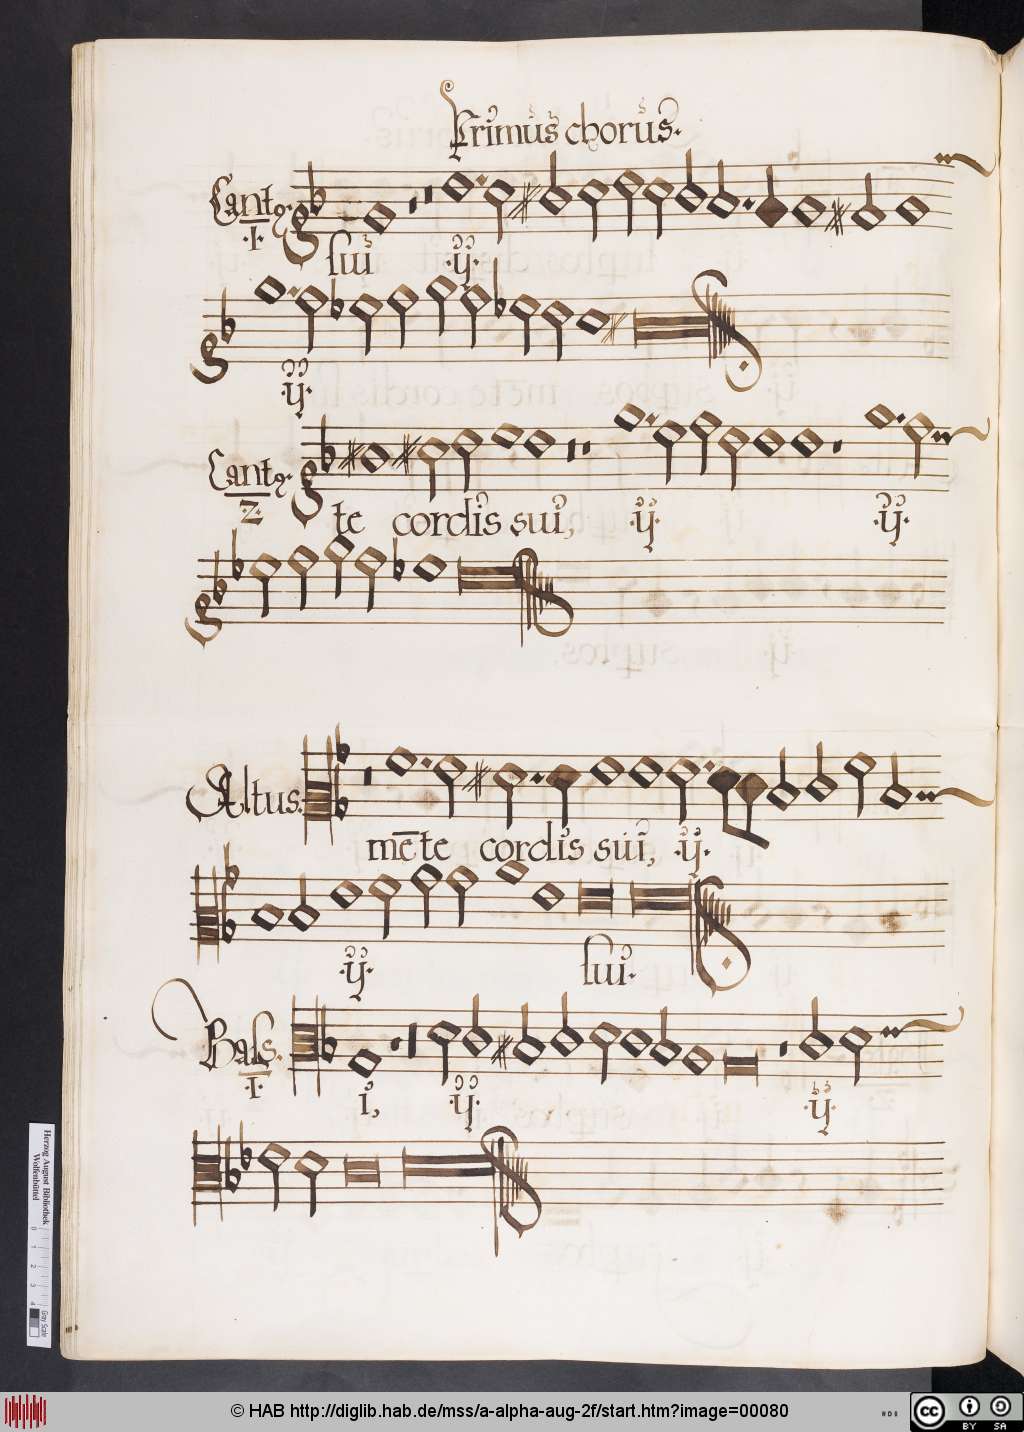 Primus chorus.
Cantꝯ. sui ·ij·
·I·
·ij·
Cantꝯ. te cordis sui, ·ij· ·ij·
·2·
Altus. mēte cordis sui, ·ij·
·ij· sui.
Bass. i, ·ij· ·ij·
·I·
Herzog August Bibliothek
Wolfenbüttel
0 1 2 3 4 Gray Scale
© HAB http://diglib.hab.de/mss/a-alpha-aug-2f/start.htm?image=00080
cc BY SA